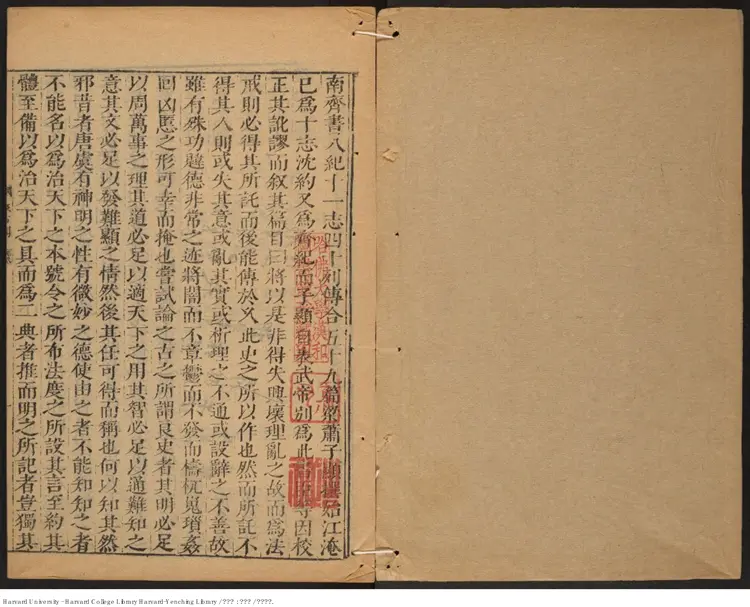 南齊書八紀十一志四十列傳合五十九篇梁蕭子顯撰始江淹
已爲十志沈約又爲齊紀而子顯自表武帝別爲此書臣等因校
正其訛謬而叙其篇目曰將以是非得失興壞理亂之故而爲法
戒則必得其所託而後能傳於久此史之所以作也然而所託不
得其人則或失其意或亂其實或析理之不通或設辭之不善故
雖有殊功韙德非常之迹將闇而不章鬱而不發而檮杌嵬瑣姦
回凶慝之形可幸而掩也嘗試論之古之所謂良史者其明必足
以周萬事之理其道必足以適天下之用其智必足以通難知之
意其文必足以發難顯之情然後其任可得而稱也何以知其然
邪昔者唐虞有神明之性有微妙之德使由之者不能知知之者
不能名以爲治天下之本號令之所布法度之所設其言至約其
體至備以爲治天下之具而爲二典者推而明之所記者豈獨其
Harvard University - Harvard College Library Harvard-Yenching Library / ??? : ??? / ????.